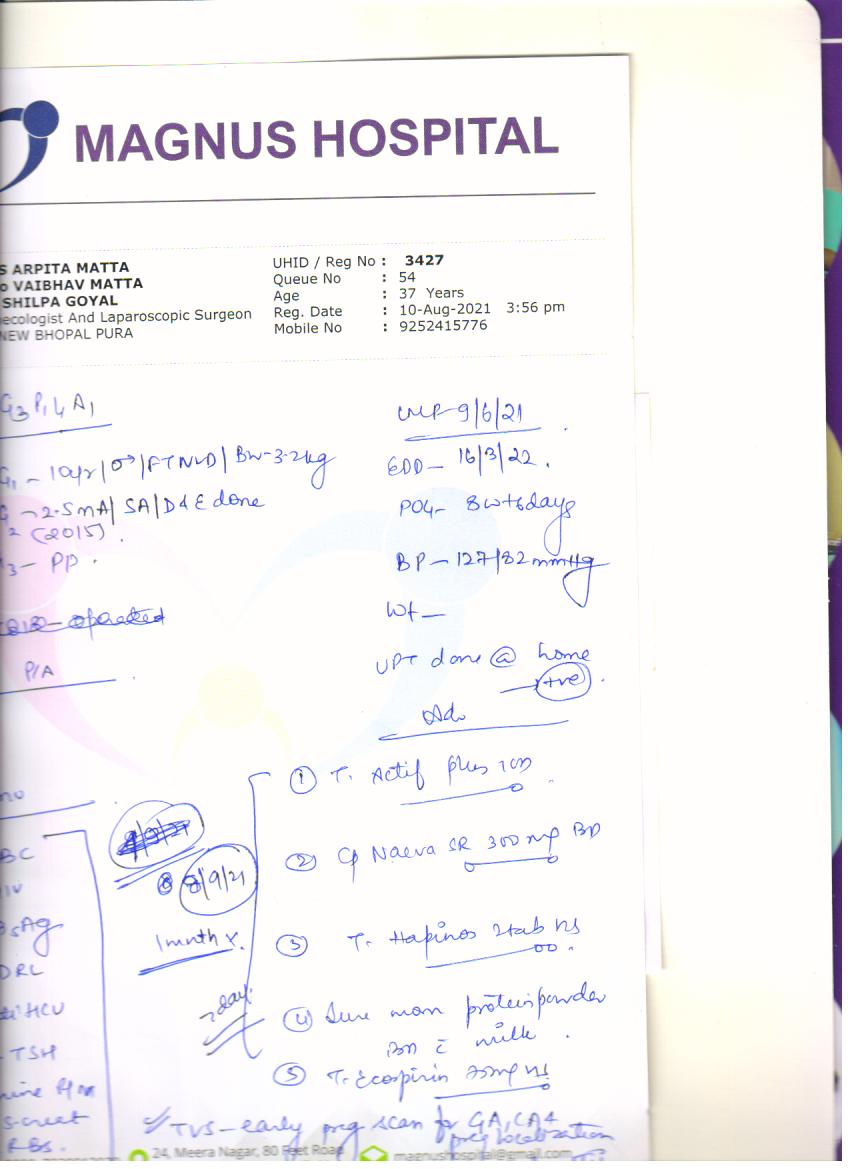 MAGNUS HOSPITAL
S ARPITA MATTA
o VAIBHAV MATTA
SHILPA GOYAL
ecologist And Laparoscopic Surgeon
NEW BHOPAL PURA
UHID / Reg No : 3427
Queue No : 54
Age : 37 Years
Reg. Date : 10-Aug-2021 3:56 pm
Mobile No : 9252415776
G3 P1L1 A1
G1 - 10yr/♂/FTNVD/BW-3.2kg
2 - 2.5 mA/ SA/D&E done
(2015).
3 - PP.
operated
P/A
LMP-9/6/21
EDD- 16/3/22.
POG- 8w+6days
BP-127/82mmHg
Wt-
UPT done @ home
→ +ve.
Adv
① T. Actif plus 1OD
② Cp Naeva SR 300mg BD
③ T. Hapinos 2tab HS
④ Sure mom protein powder
BD c̄ milk.
⑤ T. Ecosprin 75mg HS
8/9/21
1mnth x.
BC
IV
BsAg
DRL
HCV
- TSH
ine R/M
S-creat
RBS.
TVS-early preg scan for GA, CA &
preg localization
24, Meera Nagar, 80 Feet Road
magnushospital@gmail.com